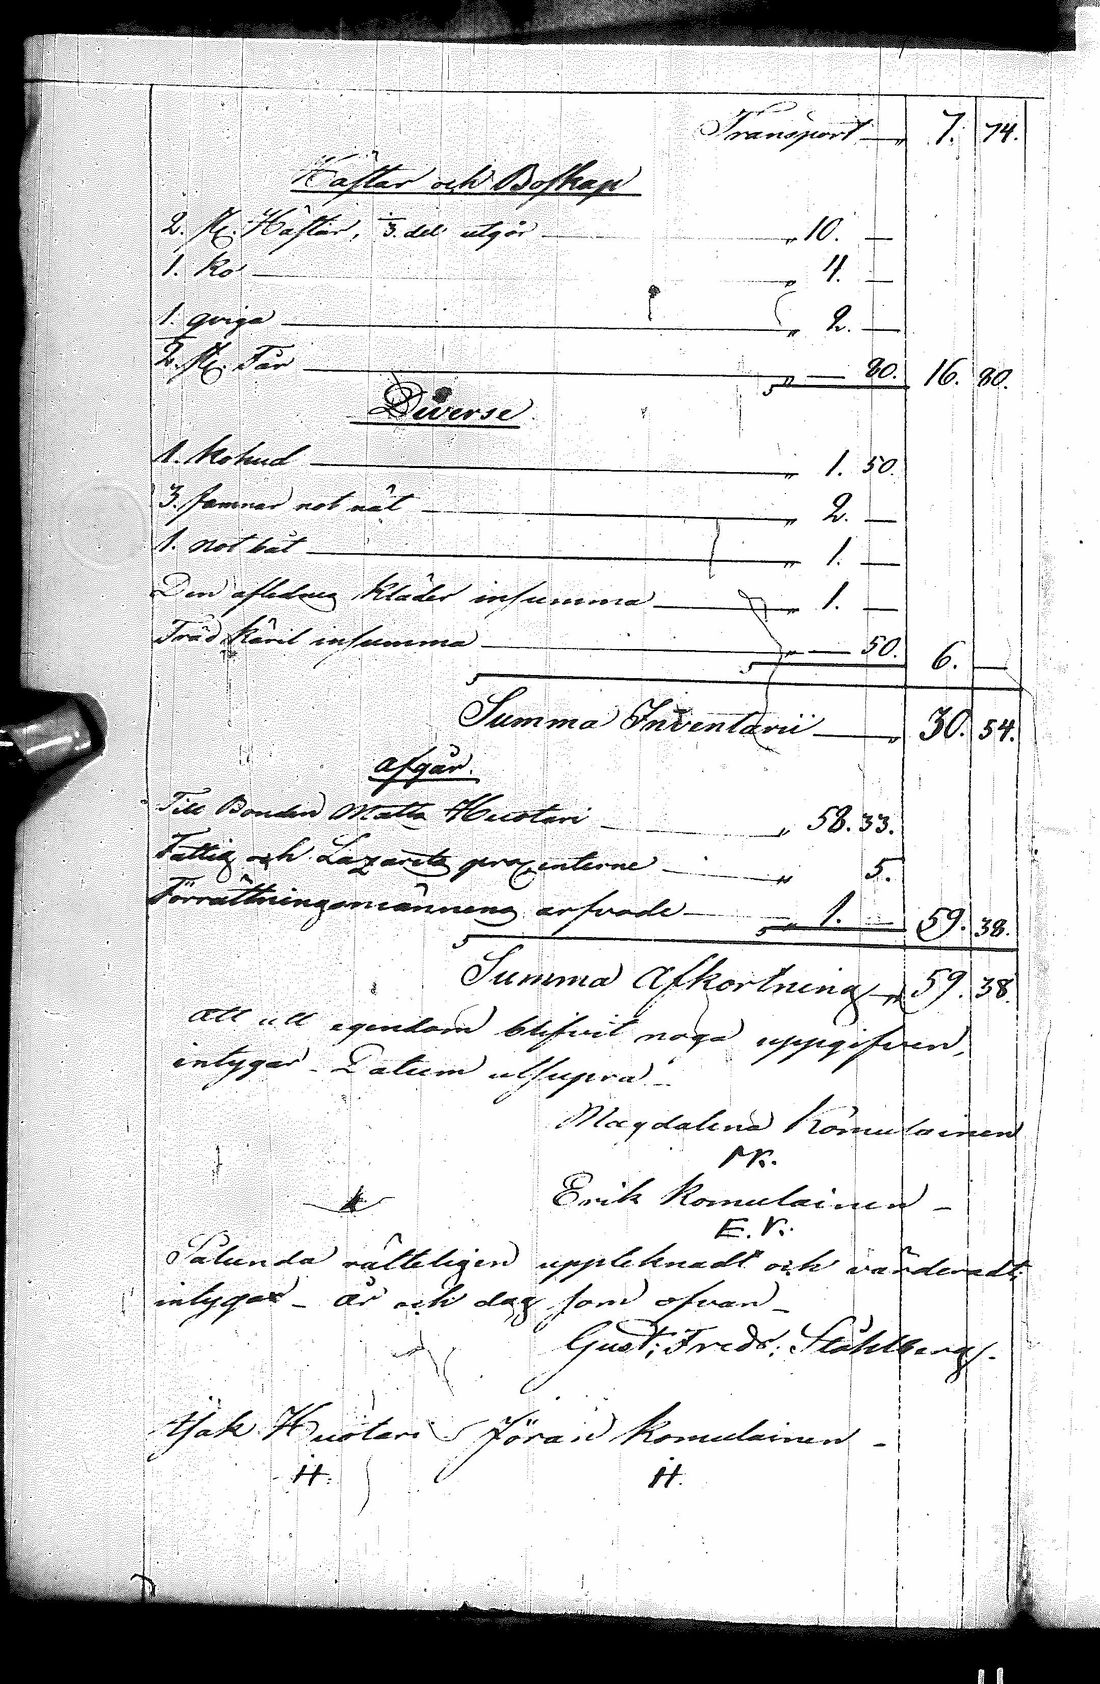 Transport — „ 7. 74.
Hästar och Boskap
2. st. Hästar, 1/3 del utgör — „ 10. —
1. ko — „ 4. —
1. qviga — „ 2. —
2. st. Får — „ — 80. 16. 80.
Diverse
1. kohud — „ 1. 50.
3. famnar not nät — „ 2. —
1. not båt — „ 1. —
Den aflednes kläder insumma — „ 1. —
Träd käril insumma — „ — 50. 6. —
Summa Inventarii — „ 30. 54.
afgår.
Till Bonden Matts Huotari — „ 58. 33.
Fattig och Lazaretts procenterne — „ 5.
Förrättningsmännens arfvode — „ 1. — 59. 38.
Summa Afkortning — „ 59. 38.
Att all egendom blifvit noga uppgifven,
intygar. Datum utsupra.
Magdalena Komulainen
Erik Komulainen —
E. K.
Sålunda rätteligen uppteknadt och värderadt;
intygar — År och dag som ofvan —
Gust: Fredr: Ståhlberg.
Isak Huotari Jöran Komulainen —